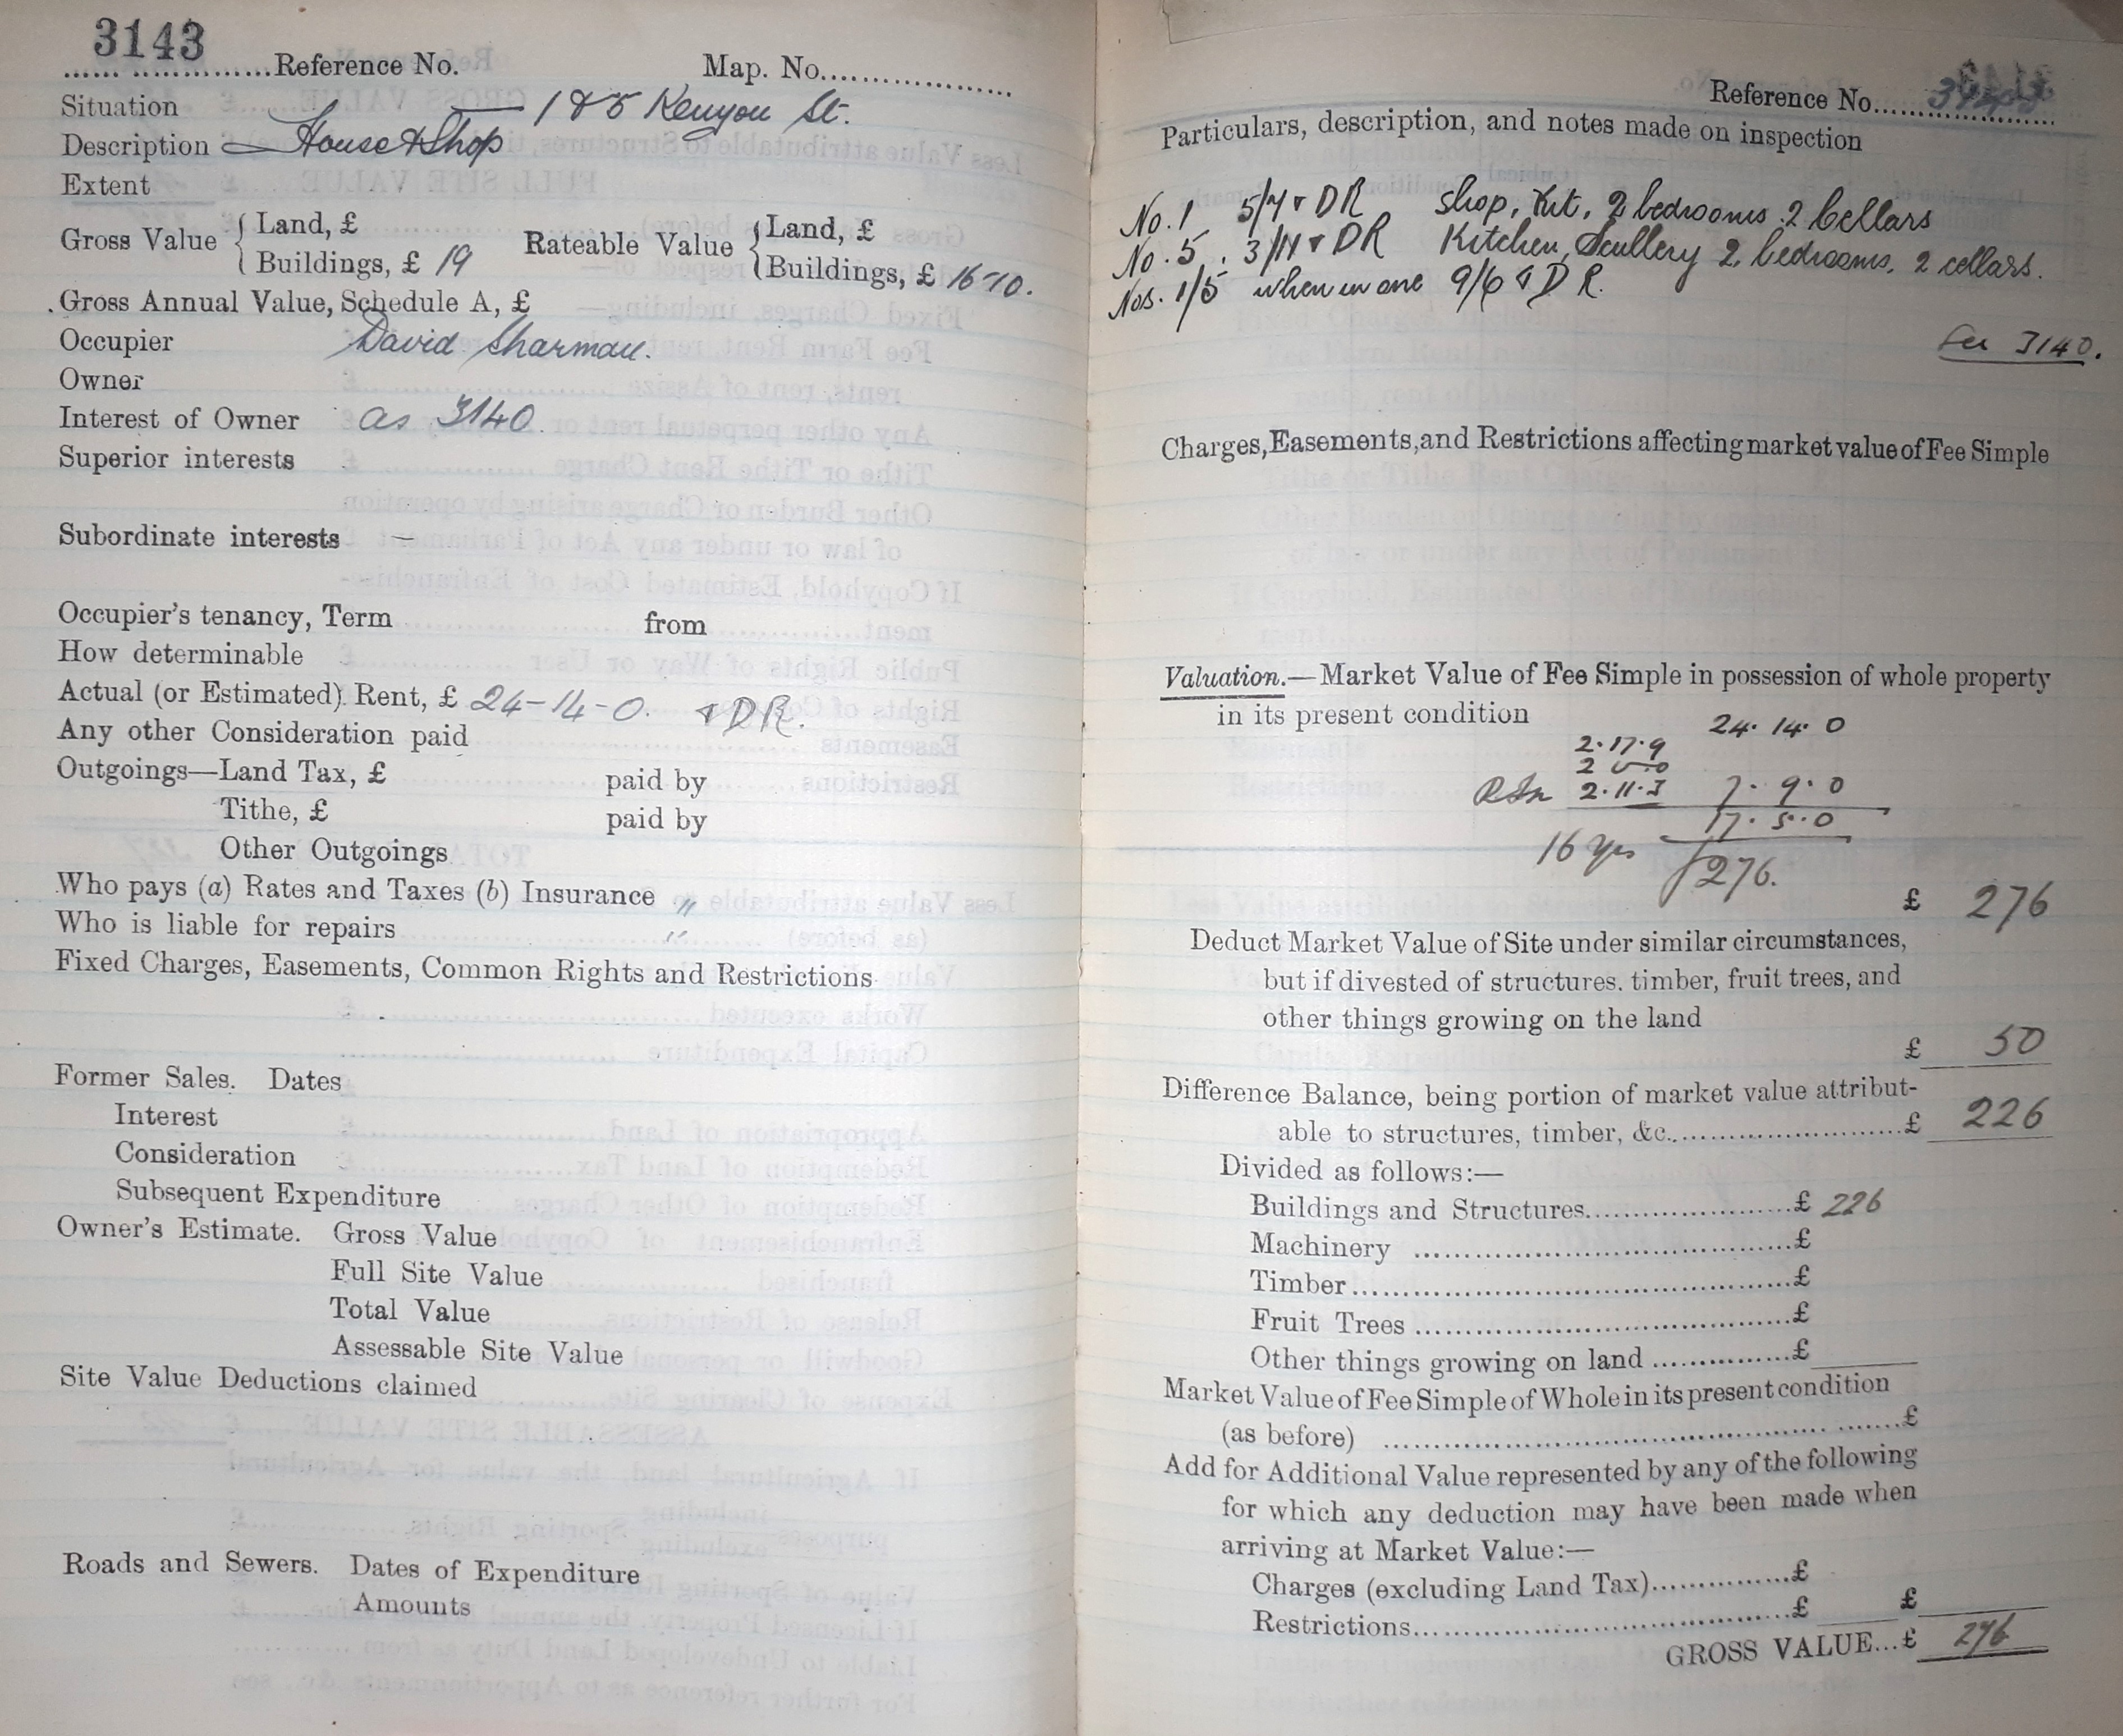 3143
Reference No. Map. No.
Situation 1 & 5 Kenyon St.
Description House & Shop
Extent
Gross Value { Land, £ Rateable Value { Land, £
Buildings, £ 19 Buildings, £ 16-10.
Gross Annual Value, Schedule A, £
Occupier David Sharman.
Owner
Interest of Owner as 3140.
Superior interests
Subordinate interests —
Occupier's tenancy, Term from
How determinable
Actual (or Estimated) Rent, £ 24-14-0. & DR.
Any other Consideration paid
Outgoings—Land Tax, £ paid by
Tithe, £ paid by
Other Outgoings
Who pays (a) Rates and Taxes (b) Insurance "
Who is liable for repairs "
Fixed Charges, Easements, Common Rights and Restrictions
Former Sales. Dates
Interest
Consideration
Subsequent Expenditure
Owner's Estimate. Gross Value
Full Site Value
Total Value
Assessable Site Value
Site Value Deductions claimed
Roads and Sewers. Dates of Expenditure
Amounts
Reference No.
Particulars, description, and notes made on inspection
No. 1 5/7 & DR Shop, Kit, 2 bedrooms. 2 Cellars
No. 5. 3/11 & DR Kitchen, Scullery 2 bedrooms, 2 cellars.
Nos. 1/5 when in one 9/6 & D R.
See 3140.
Charges, Easements, and Restrictions affecting market value of Fee Simple
Valuation.—Market Value of Fee Simple in possession of whole property
in its present condition 24. 14. 0
2.17.9
2
2.11.3 7. 9. 0
17. 5. 0
16 yrs £276.
£ 276
Deduct Market Value of Site under similar circumstances,
but if divested of structures. timber, fruit trees, and
other things growing on the land
£ 50
Difference Balance, being portion of market value attribut-
able to structures, timber, &c. £ 226
Divided as follows:—
Buildings and Structures £ 226
Machinery £
Timber £
Fruit Trees £
Other things growing on land £
Market Value of Fee Simple of Whole in its present condition
(as before) £
Add for Additional Value represented by any of the following
for which any deduction may have been made when
arriving at Market Value:—
Charges (excluding Land Tax) £
Restrictions £ £
GROSS VALUE...£ 276